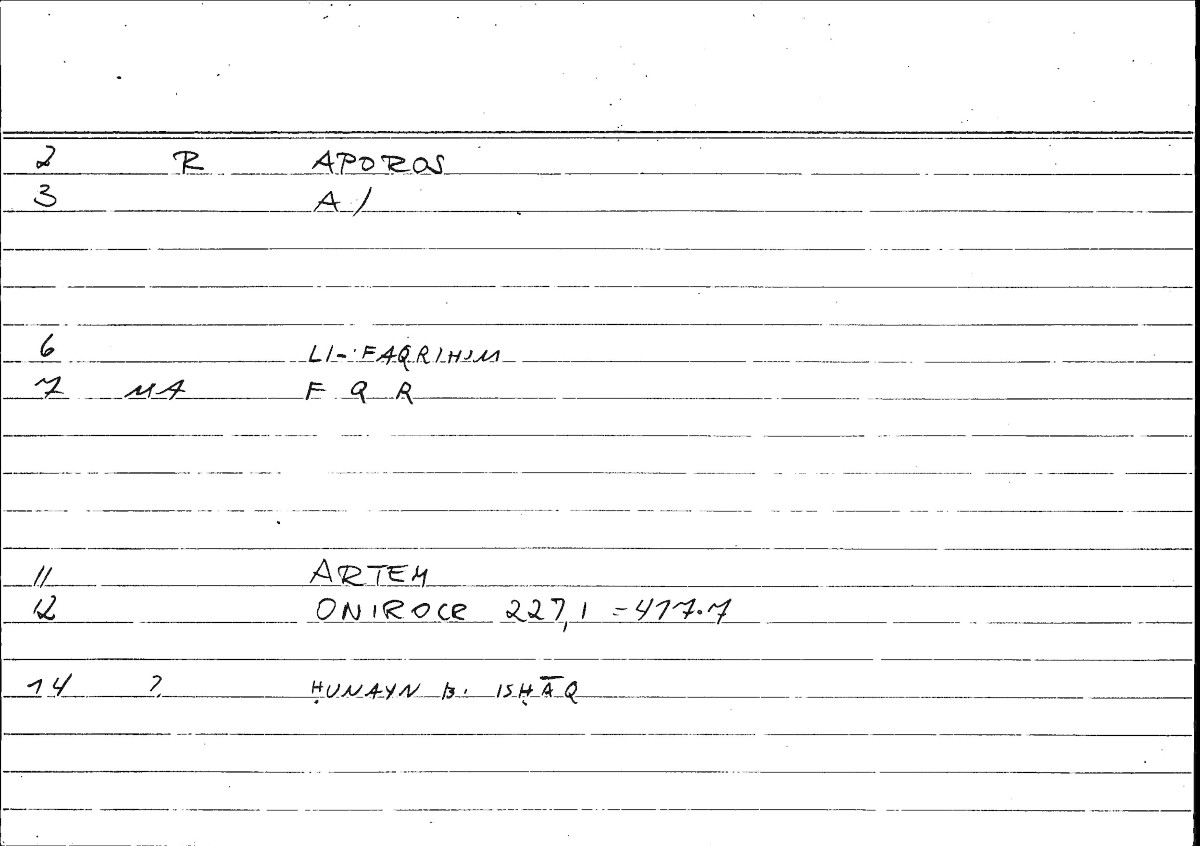 2 R APOROS
3 A /
6 LI-FAQRIHIM
7 MA F Q R
11 ARTEM
12 ONIROCR 227,1 = 417.7
14 ? ḤUNAYN B. ISḤĀQ